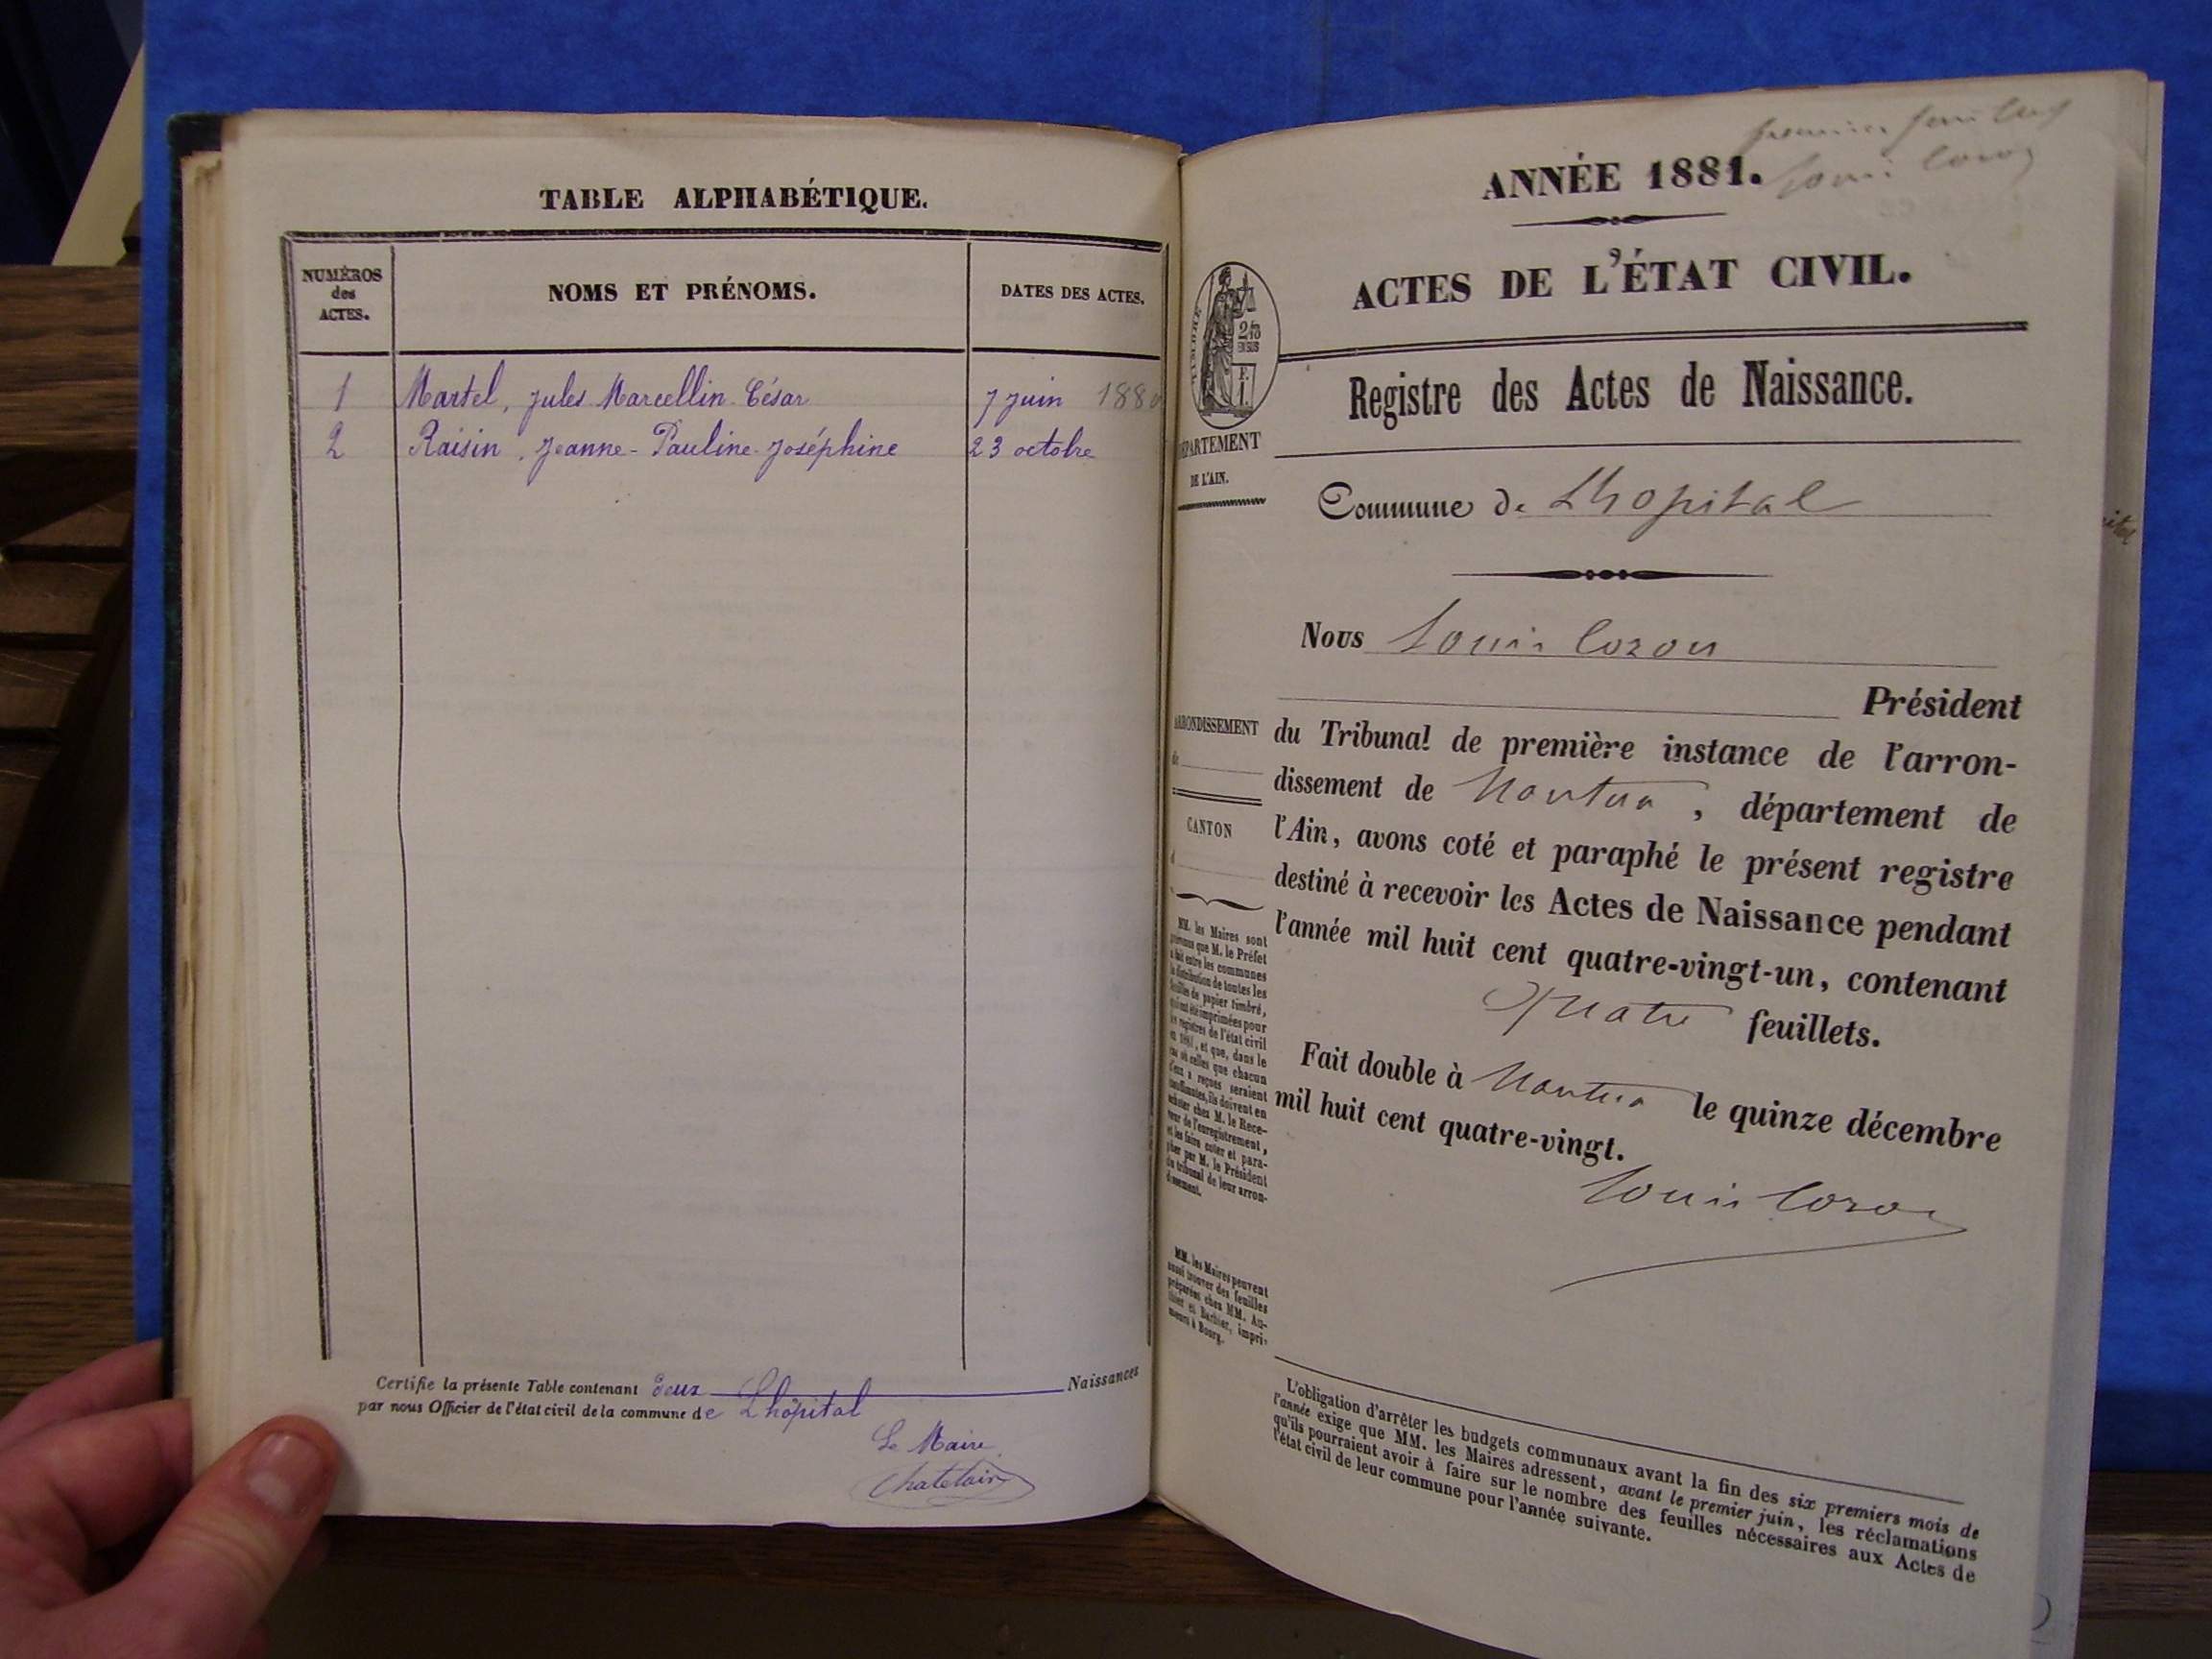 TABLE ALPHABÉTIQUE.
NUMÉROS
des
ACTES.
NOMS ET PRÉNOMS.
DATES DES ACTES.
1 Martel, Jules Marcellin César 7 juin 1880
2 Raisin, Jeanne-Pauline-Joséphine 23 octobre
Certifie la présente Table contenant deux Naissances
par nous Officier de l'état civil de la commune de Lhôpital
Le Maire
Chatelain
premier feuillet
Louis
ANNÉE 1881.
ACTES DE L'ÉTAT CIVIL.
TIMBRE
EN SUS
Registre des Actes de Naissance.
DÉPARTEMENT
DE L'AIN.
Commune de Lhopital
Nous Louis Cozon
Président
ARRONDISSEMENT
de
CANTON
du Tribunal de première instance de l'arron-
dissement de Nantua, département de
l'Ain, avons coté et paraphé le présent registre
destiné à recevoir les Actes de Naissance pendant
l'année mil huit cent quatre-vingt-un, contenant
quatre feuillets.
Fait double à Nantua le quinze décembre
mil huit cent quatre-vingt.
Louis Cozon
MM. les Maires sont
prévenus que M. le Préfet
a fait entre les communes
la distribution de toutes les
feuilles de papier timbré,
qui ont été imprimées pour
les registres de l'état civil
en 1881, et que, dans le
cas où celles que chacun
d'eux a reçues seraient
insuffisantes, ils doivent en
acheter chez M. le Rece-
veur de l'enregistrement,
et les faire coter et para-
pher par M. le Président
du tribunal de leur arron-
dissement.
MM. les Maires peuvent
aussi trouver des feuilles
préparées chez MM. Au-
thier et Barbier, impri-
meurs à Bourg.
L'obligation d'arrêter les budgets communaux avant la fin des six premiers mois de
l'année exige que MM. les Maires adressent, avant le premier juin, les réclamations
qu'ils pourraient avoir à faire sur le nombre des feuilles nécessaires aux Actes de
l'état civil de leur commune pour l'année suivante.